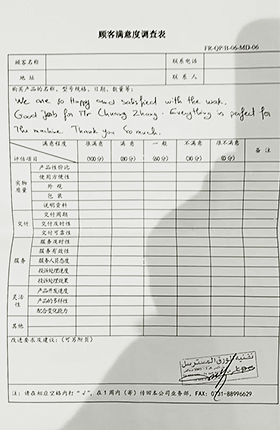 顾客满意度调查表
FR-QP/B-06-MD-06
顾客名称 联系电话
地 址 联 系 人
购买产品的名称、型号规格、日期、数量等:
We are so Happy and satisfied with the work.
Good Job for Mr Chuang Zhang. Everything is perfect for
The machine. Thank you So much.
满意程度 很满意 满意 一般 不满意 很不满意
评估项目 (100分) (80分) (60分) (30分) (0分)
实物质量 产品性价比
使用方便性
外 观
包 装
说明资料
交付 交付周期
交付及时性
交付可靠性
服务 服务及时性
服务有效性
服务人员态度
投诉处理速度
投诉处理效果
灵活性 产品开发速度
产品的多样性
配合变化能力
其他
改进要求及建议:(可另附页)
注: 请在相应空格内打“√”, 在1周内(寄)传回本公司业务部, FAX: 0731-88996629